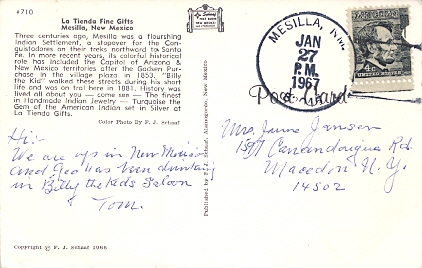 4710
La Tienda Fine Gifts
Mesilla, New Mexico
Three centuries ago, Mesilla was a flourishing
Indian Settlement, a stopover for the Con-
quistadores on their treks northward to Santa
Fe. In more recent years, its colorful historical
role has included the Capitol of Arizona &
New Mexico territories after the Gadsen Pur-
chase in the village plaza in 1853. "Billy
the Kid" walked these streets during his short
life and was on trial here in 1881. History was
lived all about you — come see — The finest
in Handmade Indian Jewelry — Turquoise the
Gem of the American Indian set in Silver at
La Tienda Gifts.
Color Photo By F. J. Schaaf
Hi:-
We are up in New Mexico
and Geo has been drinking
in Billy the Kids Saloon
Tom.
Copyright © F. J. Schaaf 1966
Published by F.J. Schaaf, Alamogordo, New Mexico
MESILLA, N.M.
JAN
27
P.M.
1967
Post Card
4c
Mrs. June Jansen
Canandaigua Rd.
Macedon N.Y.
14502